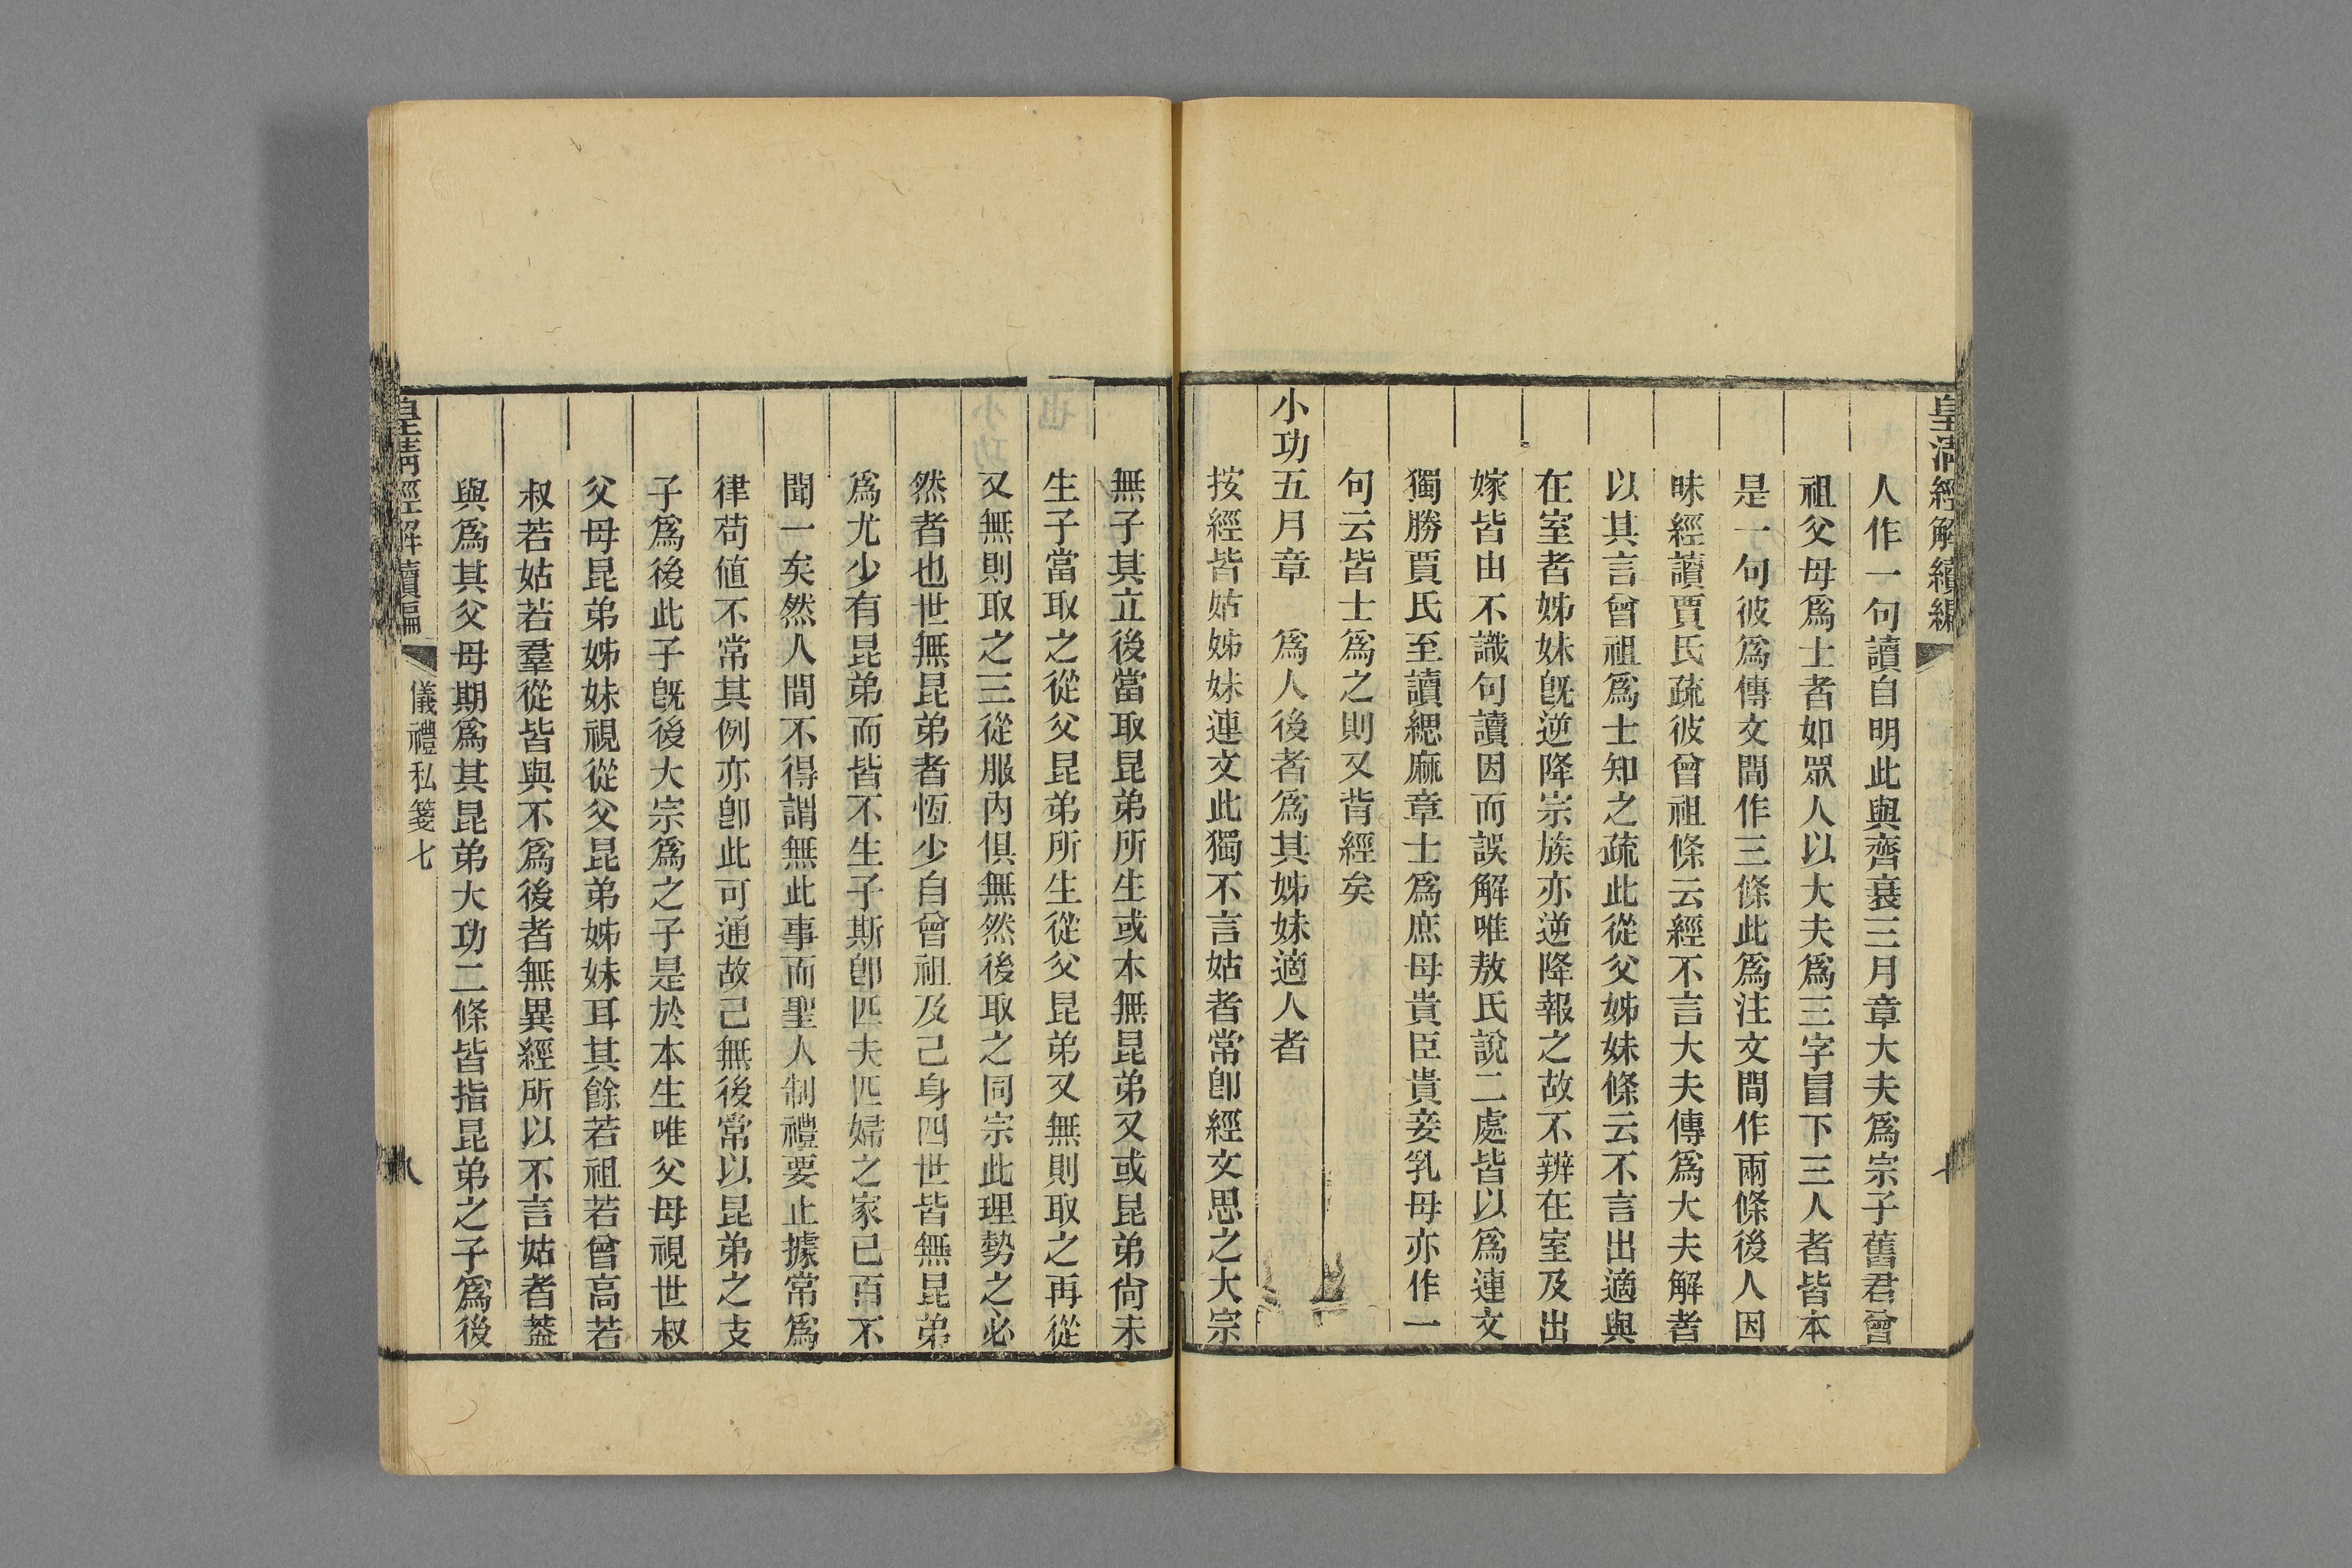 皇清經解續編
人作一句讀自明此與齊衰三月章大夫爲宗子舊君曾
祖父母爲士者如眾人以大夫爲三字冒下三人者皆本
是一句彼爲傳文閒作三條此爲注文閒作兩條後人因
昧經讀賈氏疏彼曾祖條云經不言大夫傳爲大夫解者
以其言曾祖爲士知之疏此從父姊妹條云不言出適與
在室者姊妹旣逆降宗族亦逆降報之故不辨在室及出
嫁皆由不識句讀因而誤解唯敖氏說二處皆以爲連文
獨勝賈氏至讀緦麻章士爲庶母貴臣貴妾乳母亦作一
句云皆士爲之則又背經矣
小功五月章 爲人後者爲其姊妹適人者
按經皆姑姊妹連文此獨不言姑者常卽經文思之大宗
無子其立後當取昆弟所生或本無昆弟又或昆弟尙未
生子當取之從父昆弟所生從父昆弟又無則取之再從
又無則取之三從服內俱無然後取之同宗此理勢之必
然者也世無昆弟者恆少自曾祖及己身四世皆無昆弟
爲尤少有昆弟而皆不生子斯卽匹夫匹婦之家已百不
聞一矣然人閒不得謂無此事而聖人制禮要止據常爲
律苟値不常其例亦卽此可通故己無後常以昆弟之支
子爲後此子旣後大宗爲之子是於本生唯父母視世叔
父母昆弟姊妹視從父昆弟姊妹耳其餘若祖若曾高若
叔若姑若羣從皆與不爲後者無異經所以不言姑者葢
與爲其父母期爲其昆弟大功二條皆指昆弟之子爲後
皇清經解續編
儀禮私箋七
八